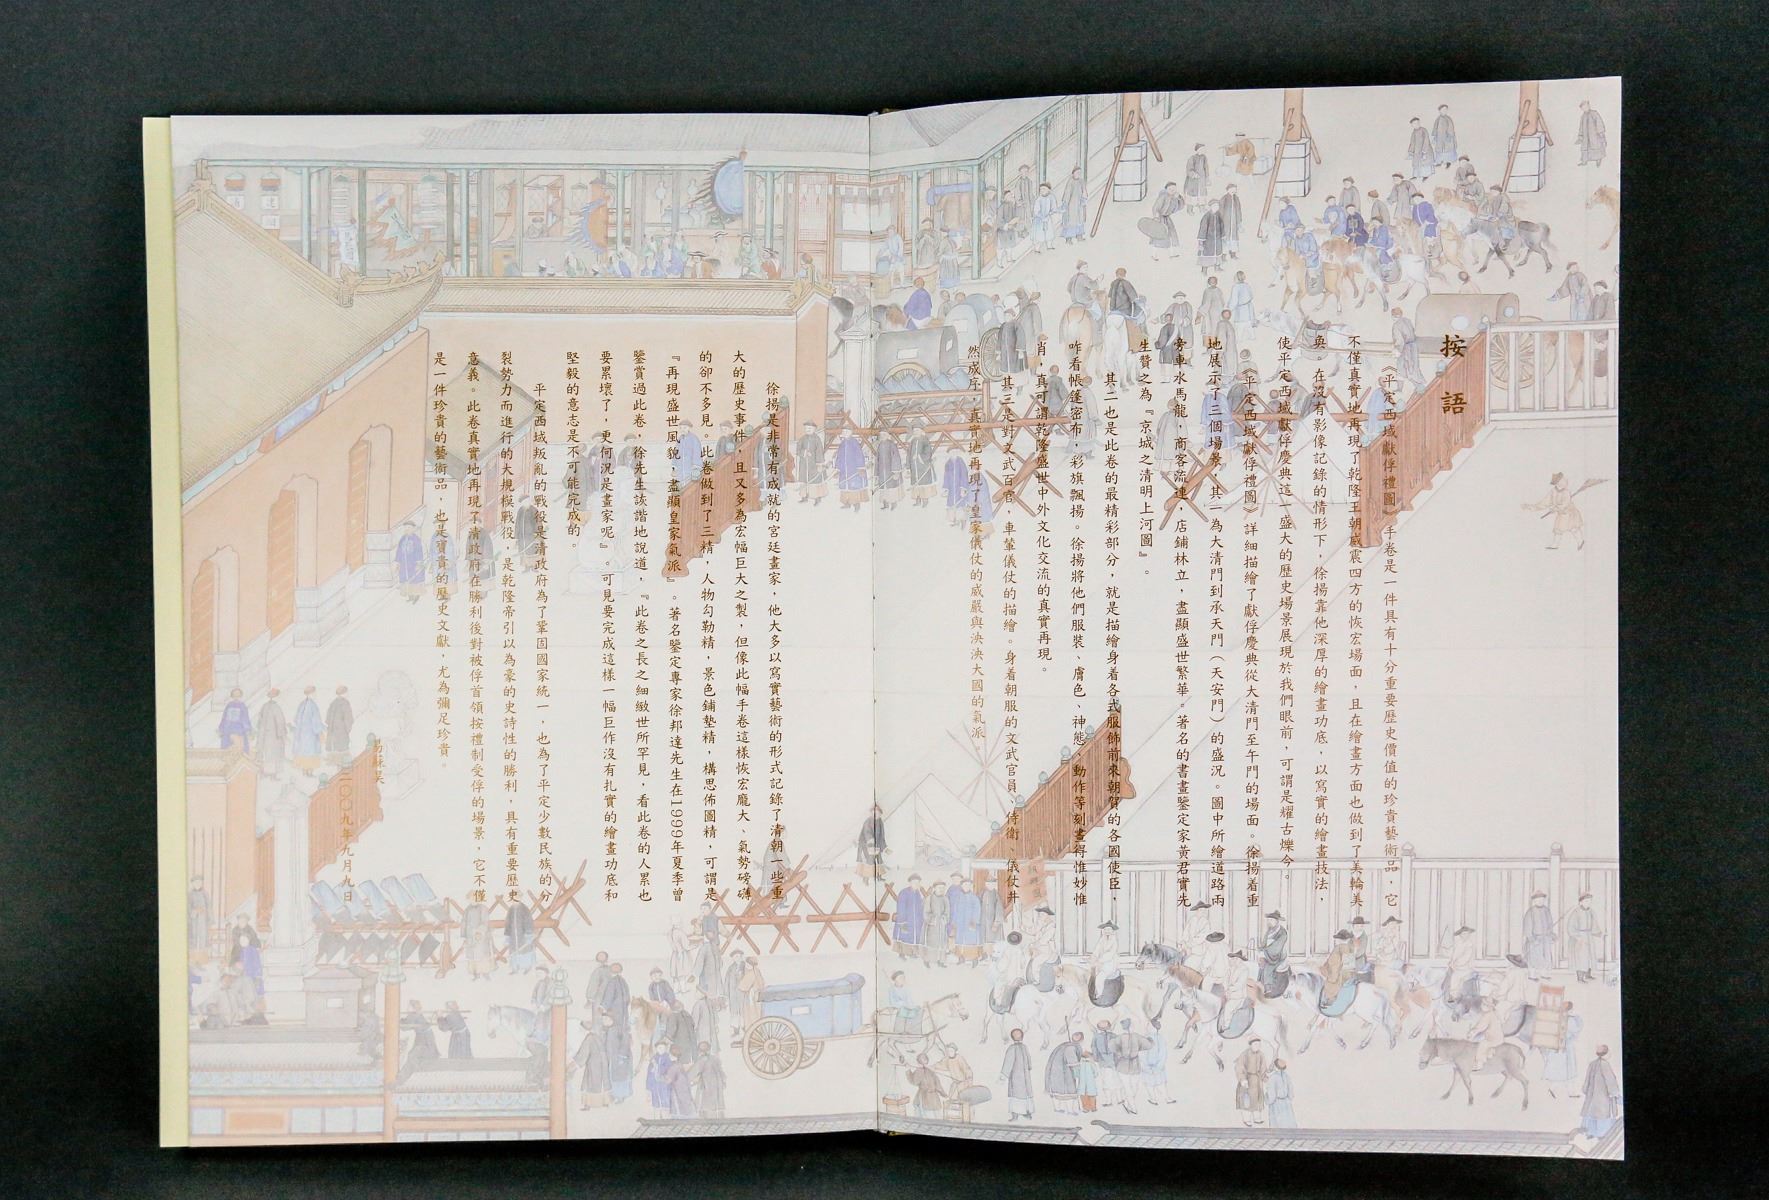 按語
《平定西域獻俘禮圖》手卷是一件具有十分重要歷史價值的珍貴藝術品，它
不僅真實地再現了乾隆王朝威震四方的恢宏場面，且在繪畫方面也做到了美輪美
奐。在沒有影像記錄的情形下，徐揚靠他深厚的繪畫功底，以寫實的繪畫技法，
使平定西域獻俘慶典這一盛大的歷史場景展現於我們眼前，可謂是耀古爍今。
《平定西域獻俘禮圖》詳細描繪了獻俘慶典從大清門至午門的場面。徐揚着重
地展示了三個場景，其一為大清門到承天門（天安門）的盛況。圖中所繪道路兩
旁車水馬龍，商客流連，店鋪林立，盡顯盛世繁華。著名的書畫鑒定家黃君實先
生贊之為『京城之清明上河圖』。
其二也是此卷的最精彩部分，就是描繪身着各式服飾前來朝賀的各國使臣，
咋看帳篷密布，彩旗飄揚。徐揚將他們服裝、膚色、神態、動作等刻畫得惟妙惟
肖，真可謂乾隆盛世中外文化交流的真實再現。
其三是對文武百官，車輦儀仗的描繪。身着朝服的文武官員、侍衛、儀仗井
然成序，真實地再現了皇家儀仗的威嚴與泱泱大國的氣派。
徐揚是非常有成就的宮廷畫家，他大多以寫實藝術的形式記錄了清朝一些重
大的歷史事件，且又多為宏幅巨大之製，但像此幅手卷這樣恢宏龐大、氣勢磅礴
的卻不多見。此卷做到了三精，人物勾勒精，景色鋪墊精，構思佈圖精，可謂是
『再現盛世風貌，盡顯皇家氣派』。著名鑒定專家徐邦達先生在1999年夏季曾
鑒賞過此卷，徐先生詼諧地說道，『此卷之長之細緻世所罕見，看此卷的人累也
要累壞了，更何況是畫家呢』。可見要完成這樣一幅巨作沒有扎實的繪畫功底和
堅毅的意志是不可能完成的。
平定西域叛亂的戰役是清政府為了鞏固國家統一，也為了平定少數民族的分
裂勢力而進行的大規模戰役，是乾隆帝引以為豪的史詩性的勝利，具有重要歷史
意義。此卷真實地再現了清政府在勝利後對被俘首領按禮制受俘的場景，它不僅
是一件珍貴的藝術品，也是寶貴的歷史文獻，尤為彌足珍貴。
易蘇昊
二〇〇九年九月九日